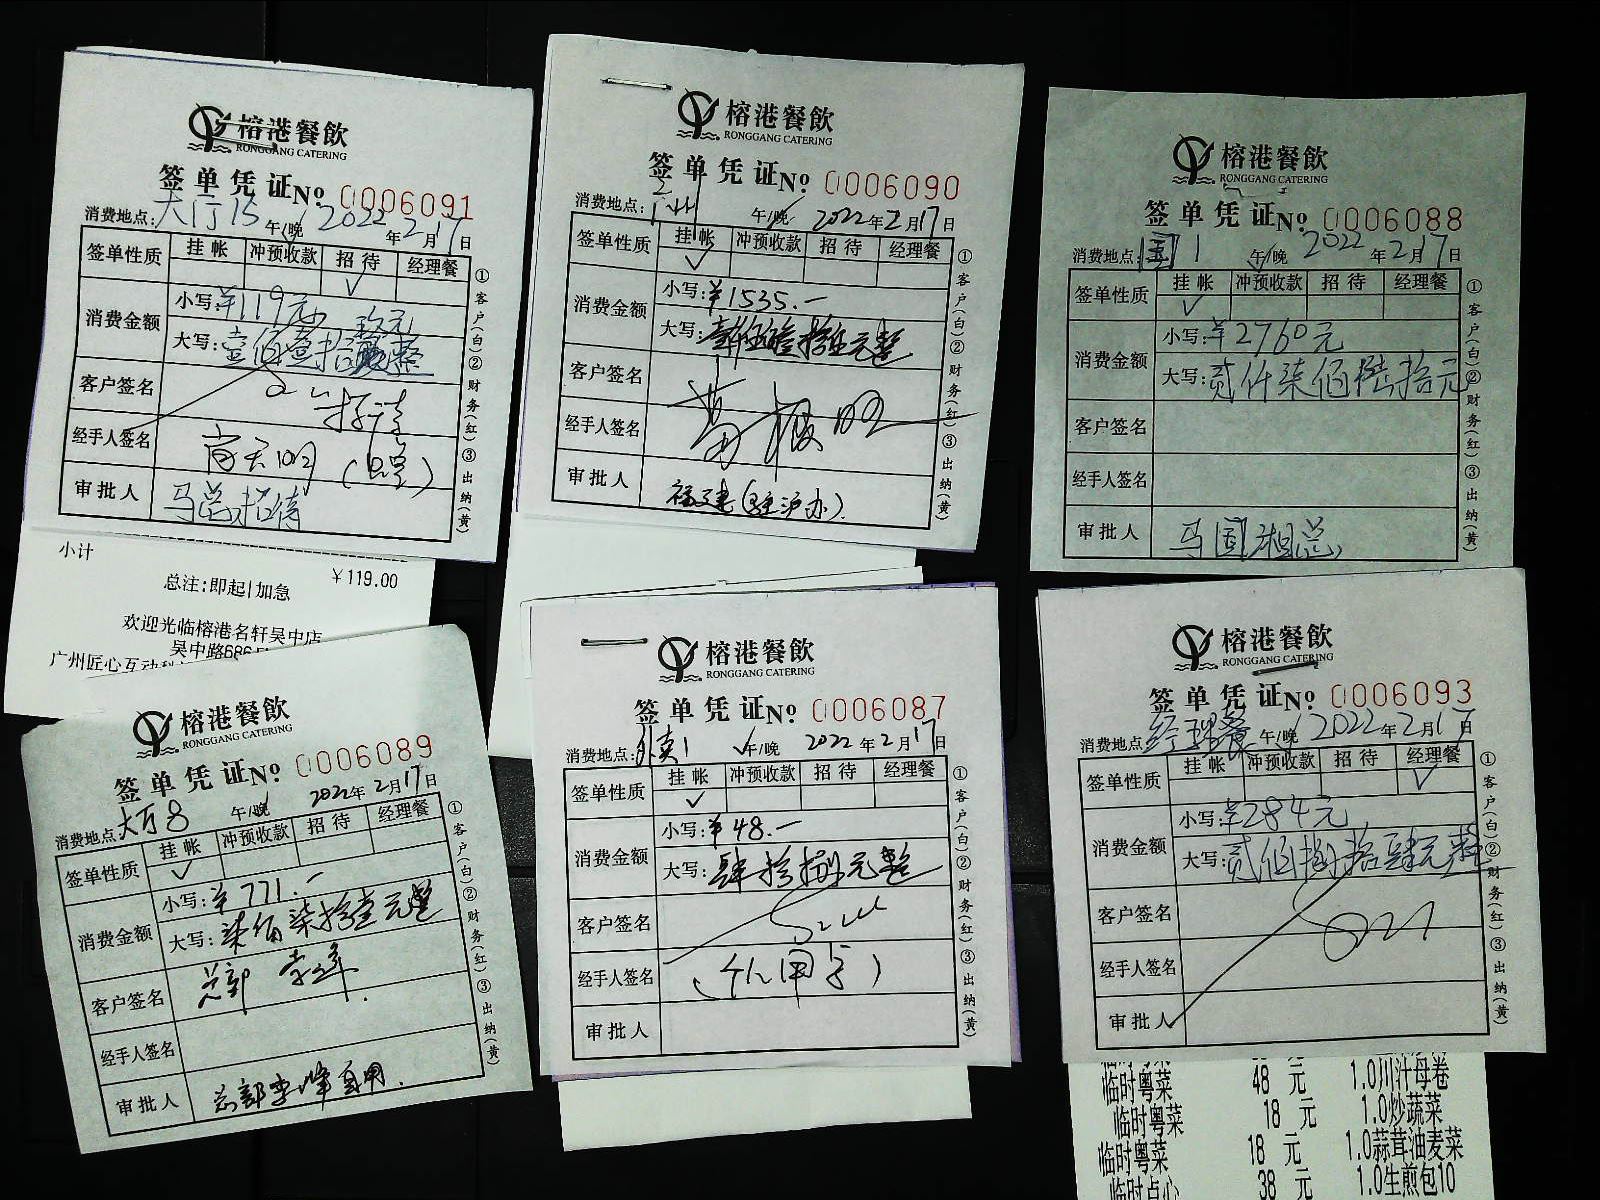 榕港餐飲
RONGGANG CATERING
签单凭证 No 0006091
消费地点: 大厅15 午/晚 2022年2月17日
签单性质 挂帐 冲预收款 招待 经理餐
消费金额 小写:¥119元
大写:壹佰壹拾玖元整
客户签名
招待
经手人签名
审批人 马总招待
①客户(白)②财务(红)③出纳(黄)
小计
¥119.00
总注:即起|加急
欢迎光临榕港名轩吴中店
吴中路686
广州匠心互动科
榕港餐飲
RONGGANG CATERING
签单凭证 No 0006090
消费地点: 广州 午/晚 2022年2月17日
签单性质 挂帐 冲预收款 招待 经理餐
消费金额 小写:¥1535.—
大写:壹仟伍佰叁拾伍元整
客户签名
经手人签名
审批人 福建(驻沪办)
①客户(白)②财务(红)③出纳(黄)
榕港餐飲
RONGGANG CATERING
签单凭证 No 0006088
消费地点: 国1 午/晚 2022年2月17日
签单性质 挂帐 冲预收款 招待 经理餐
消费金额 小写:¥2760元
大写:贰仟柒佰陆拾元
客户签名
经手人签名
审批人 马国湘总
①客户(白)②财务(红)③出纳(黄)
榕港餐飲
RONGGANG CATERING
签单凭证 No 0006089
消费地点 大厅8 午/晚 2022年2月17日
签单性质 挂帐 冲预收款 招待 经理餐
消费金额 小写:¥771.—
大写:柒佰柒拾壹元整
客户签名 总部 李峰
经手人签名
审批人 总部李峰自用.
①客户(白)②财务(红)③出纳(黄)
榕港餐飲
RONGGANG CATERING
签单凭证 No 0006087
消费地点: 外卖1 午/晚 2022年2月17日
签单性质 挂帐 冲预收款 招待 经理餐
消费金额 小写:¥48.—
大写:肆拾捌元整
客户签名
经手人签名
审批人
①客户(白)②财务(红)③出纳(黄)
榕港餐飲
RONGGANG CATERING
签单凭证 No 0006093
消费地点 经理餐 午/晚 2022年2月17日
签单性质 挂帐 冲预收款 招待 经理餐
消费金额 小写:¥284元
大写:贰佰捌拾肆元整
客户签名
经手人签名
审批人
①客户(白)②财务(红)③出纳(黄)
临时粤菜 48 元 1.0川汁母卷
临时粤菜 18 元 1.0炒蔬菜
临时粤菜 18 元 1.0蒜茸油麦菜
临时点心 38 元 1.0生煎包10